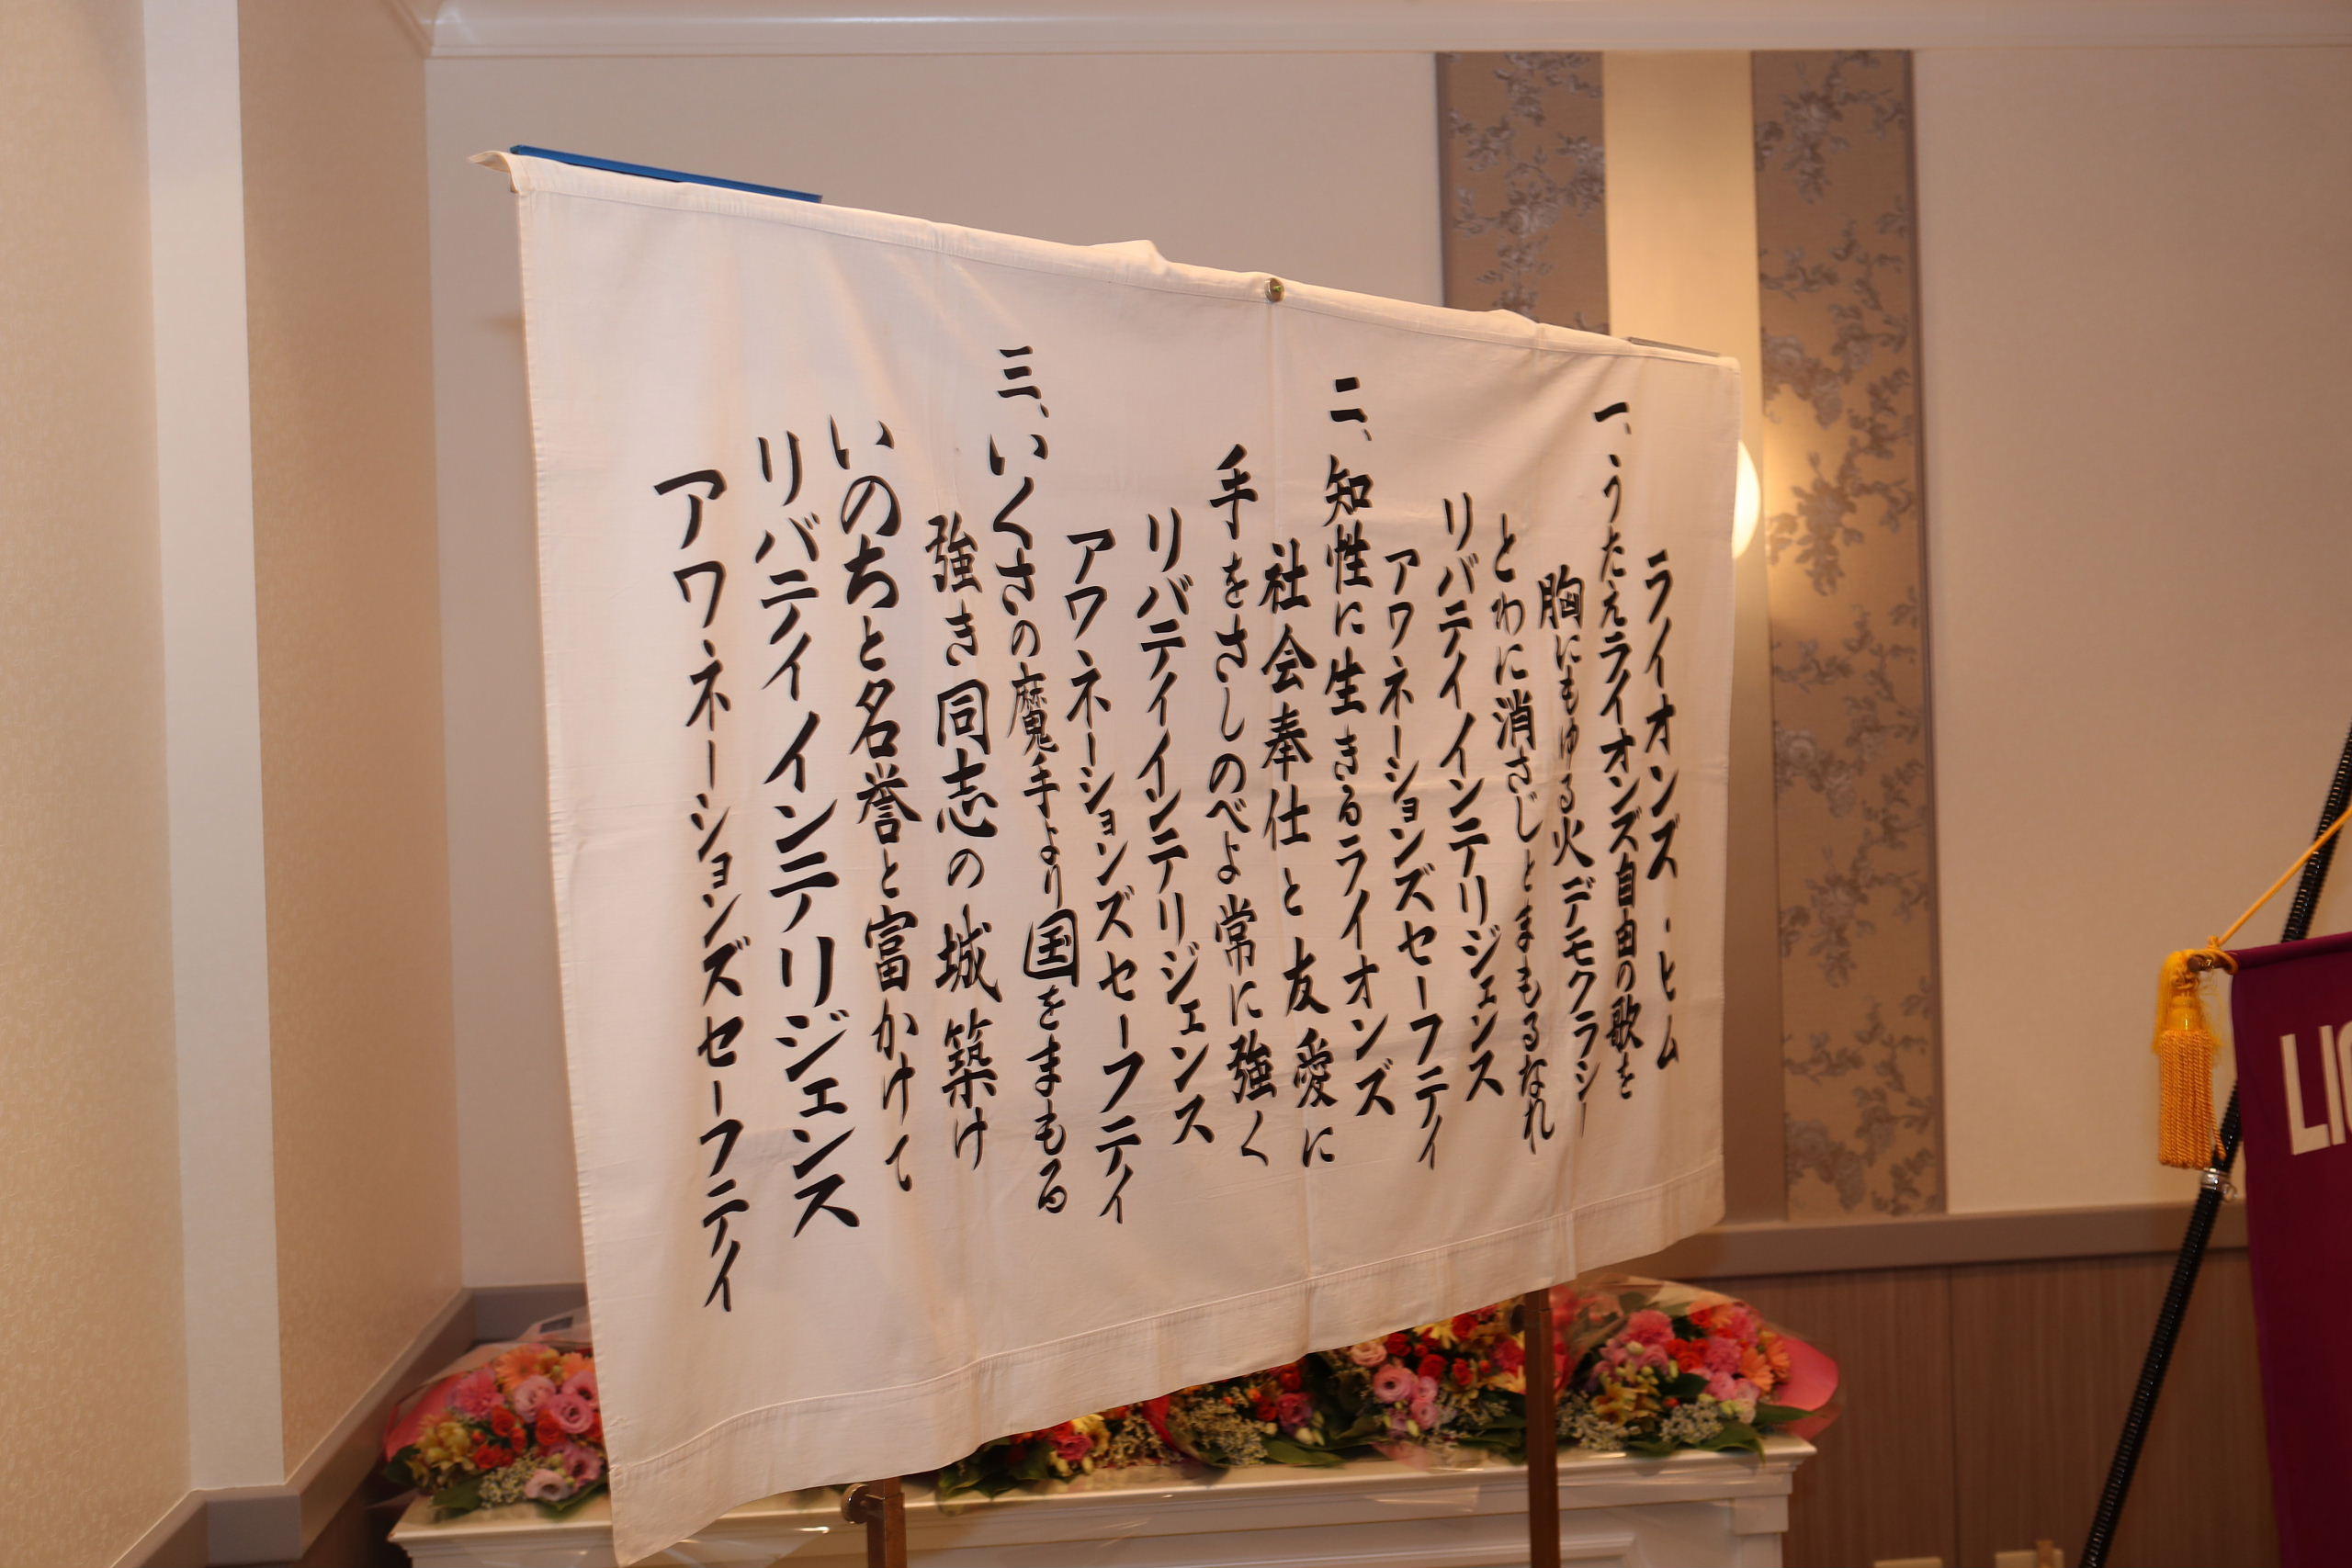 ライオンズ・ヒム
一、うたえライオンズ自由の歌を
胸にもゆる火デモクラシー
とわに消さじとまもるなれ
リバティインテリジェンス
アワネーションズセーフティ
二、知性に生きるライオンズ
社会奉仕と友愛に
手をさしのべよ常に強く
リバティインテリジェンス
アワネーションズセーフティ
三、いくさの魔手より国をまもる
強き同志の城築け
いのちと名誉と富かけて
リバティインテリジェンス
アワネーションズセーフティ